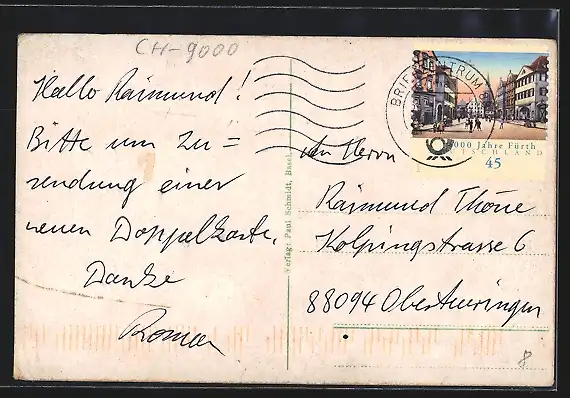 CH-9000
Hallo Raimund!
Bitte um Zu=
sendung einer
neuen Doppelkarte.
Danke
Roman
Verlag: Paul Schmidt, Basel
BRIEFZENTRUM
1000 Jahre Fürth
DEUTSCHLAND
45
An Herrn
Raimund Thöne
Kolpingstrasse 6
88094 Obertheuringen
8